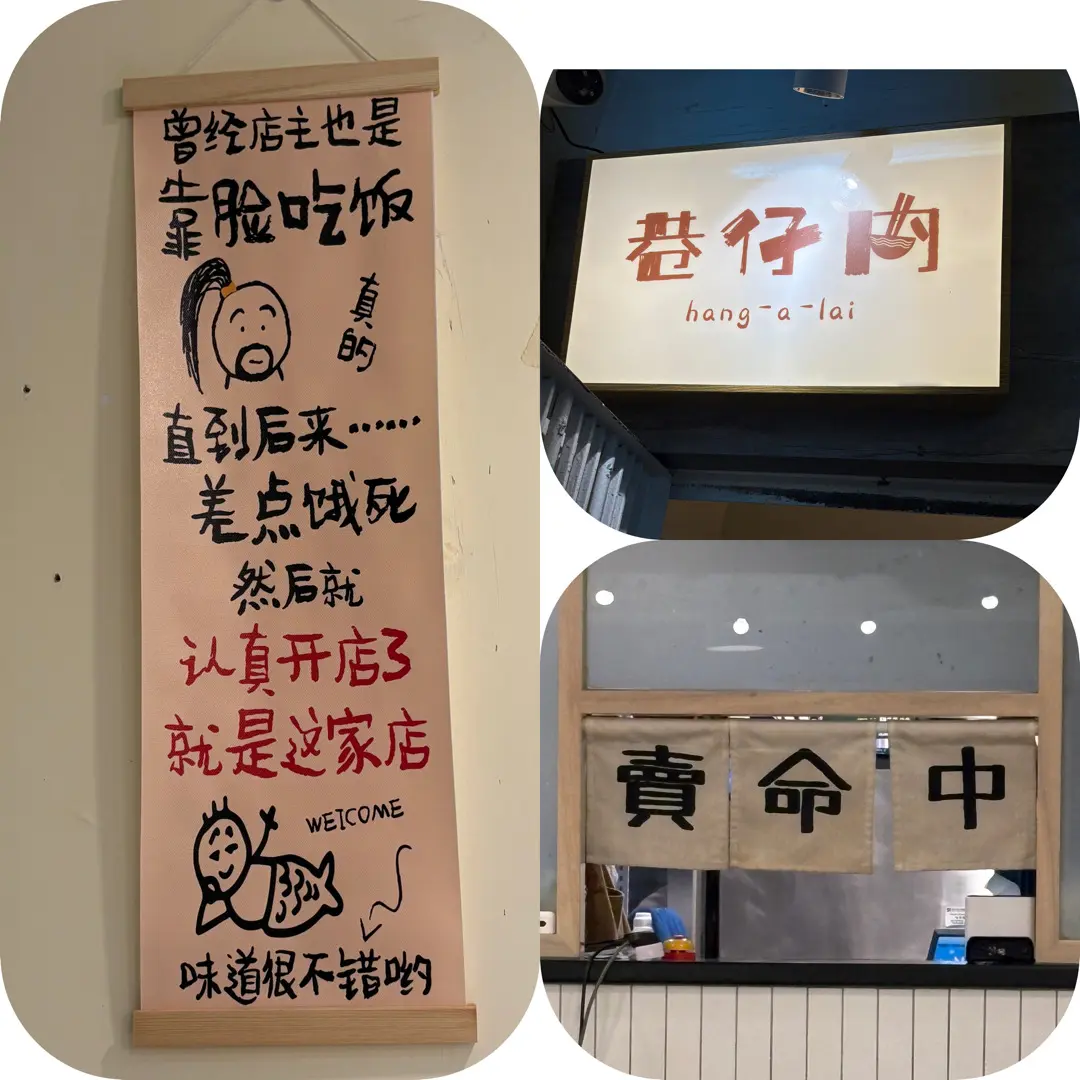 曾经店主也是
靠脸吃饭
真的
直到后来……
差点饿死
然后就
认真开店了
就是这家店
WElCOME
味道很不错哟
巷仔内
hang-a-lai
賣命中